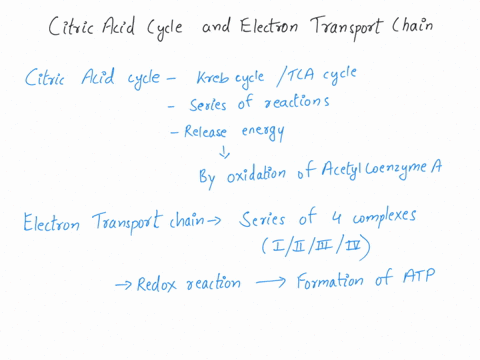 Citric Acid Cycle and Electron Transport Chain
Citric Acid cycle – Kreb cycle / TCA cycle
- Series of reactions
- Release energy
↓
By oxidation of Acetyl Coenzyme A
Electron Transport chain → Series of 4 complexes
(I/II/III/IV)
→ Redox reaction → Formation of ATP